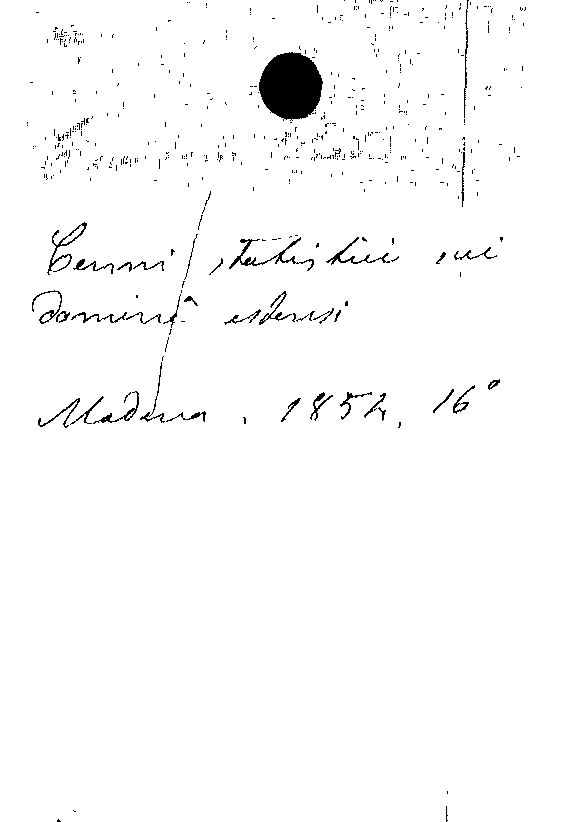 Cenni statistici sui
dominî estensi
Modena, 1852, 16°